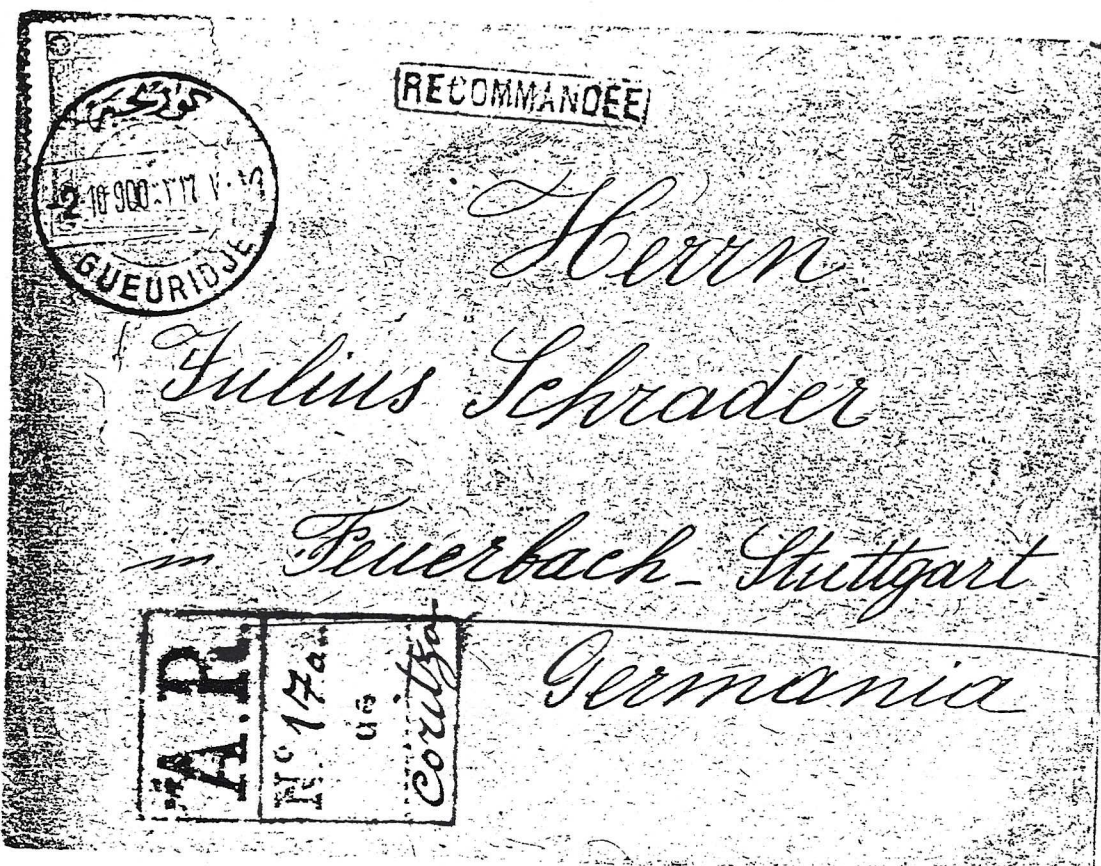 RECOMMANDEE
GUEURIDJE
Herrn
Julius Schrader
in Feuerbach - Stuttgart
Germania
A.R.
No 17a
Coritza